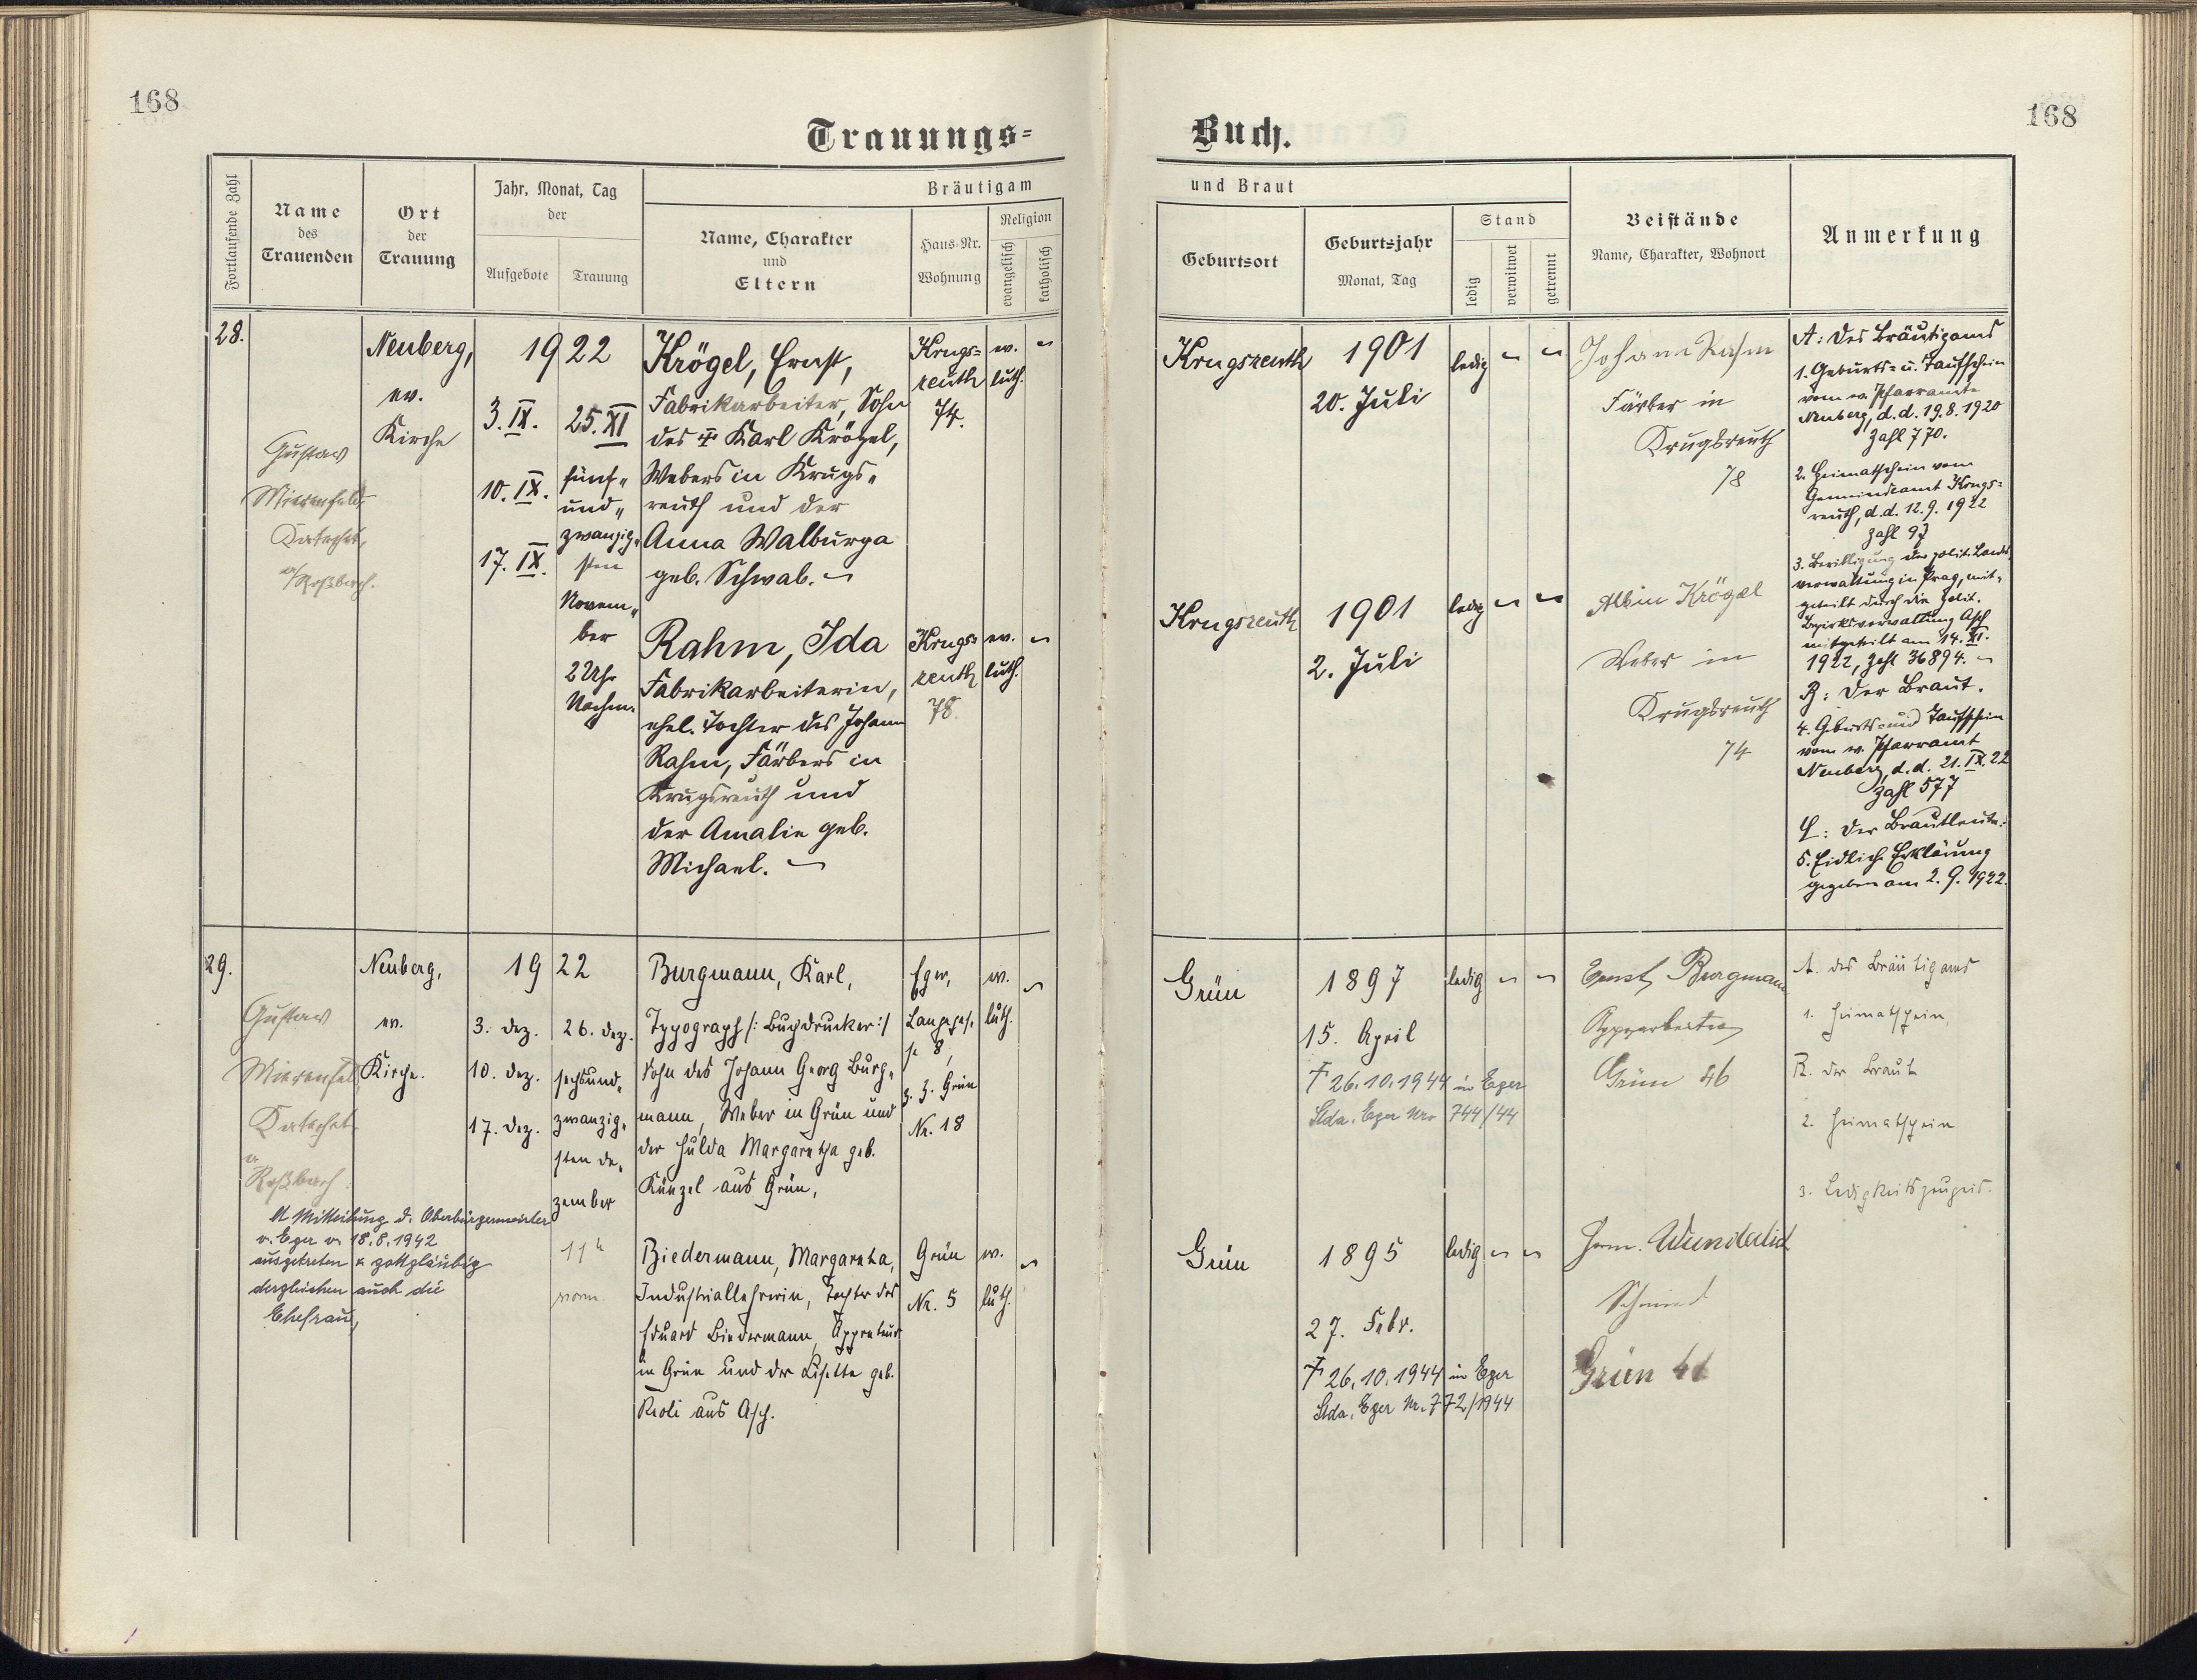 168
168
Trauungs-
Buch.
Fortlaufende Zahl
Name
des
Trauenden
Ort
der
Trauung
Jahr, Monat, Tag
der
Aufgebote
Trauung
Bräutigam
Name, Charakter
und
Eltern
Haus-Nr.
Wohnung
Religion
evangelisch
katholisch
und Braut
Geburtsort
Geburtsjahr
Monat, Tag
Stand
ledig
verwitwet
getrennt
Beistände
Name, Charakter, Wohnort
Anmerkung
28.
Gustav
Katechet,
Roßbach.
Neuberg,
ev.
Kirche
1922
3. IX.
10. IX.
17. IX.
25. XI
fünf-
und-
zwanzig-
sten
Novem-
ber
2 Uhr
Nachm.
Krögel, Ernst,
Fabrikarbeiter, Sohn
des † Karl Krögel,
Webers in Krugs-
reuth und der
Anna Walburga
geb. Schwab.
Krugs-
reuth
74.
ev.
luth.
Rahm, Ida
Fabrikarbeiterin,
ehel. Tochter des Johann
Rahm, Färbers in
Krugsreuth und
der Amalie geb.
Michael.
Krugs-
reuth
78.
ev.
luth.
Krugsreuth
1901
20. Juli
ledig
Johann Rahm
Färber in
Krugsreuth
78
Krugsreuth
1901
2. Juli
ledig
Albin Krögel
Weber in
Krugsreuth
74
A: des Bräutigams
1. Geburts- u. Taufschein
vom ev. Pfarramte
Neuberg, d.d. 19.8.1920
Zahl 770.
2. Heimatschein vom
Gemeindeamt Krugs-
reuth, d.d. 12.9.1922
Zahl 97
3. Bewilligung der polit. Landes
verwaltung in Prag, mit-
geteilt durch die polit.
Bezirksverwaltung Asch
mitgeteilt am 14. XI.
1922, Zahl 36894.
B: der Braut.
4. Geburts- und Taufschein
vom ev. Pfarramt
Neuberg, d.d. 21. IX. 22
Zahl 577
C: der Brautleute:
5. Eidliche Erklärung
gegeben am 2.9.1922.
29.
Gustav
Katechet
Roßbach.
Lt Mitteilung d. Oberbürgermeister
v. Eger v. 18.8.1942
ausgetreten u. gottgläubig
dergleichen auch die
Ehefrau,
Neuberg,
ev.
Kirche.
1922
3. Dez.
10. Dez.
17. Dez.
26. Dez.
sechsund-
zwanzig-
sten De-
zember
11 h
vorm.
Burgmann, Karl,
Typograph /: Buchdrucker :/
Sohn des Johann Georg Burg-
mann, Weber in Grün und
der Hulda Margaretha geb.
Künzel aus Grün,
Eger,
8,
z. Z. Grün
Nr. 18
ev.
luth.
Biedermann, Margaretha,
Industriallehrerin, Tochter des
Eduard Biedermann, Appreteur
in Grün und der Lisette geb.
aus Asch.
Grün
Nr. 5
ev.
luth.
Grün
1897
15. April
† 26.10.1944 in Eger
Stda. Eger Nr. 744/44
ledig
Ernst Burgmann
Grün 46
Grün
1895
27. Febr.
† 26.10.1944 in Eger
Stda. Eger Nr. 772/1944
ledig
Herm. Wunderlich
Schmied
Grün 41
A. des Bräutigams
1. Heimatschein,
B. der Braut
2. Heimatschein
3. Ledigkeitszeugnis.